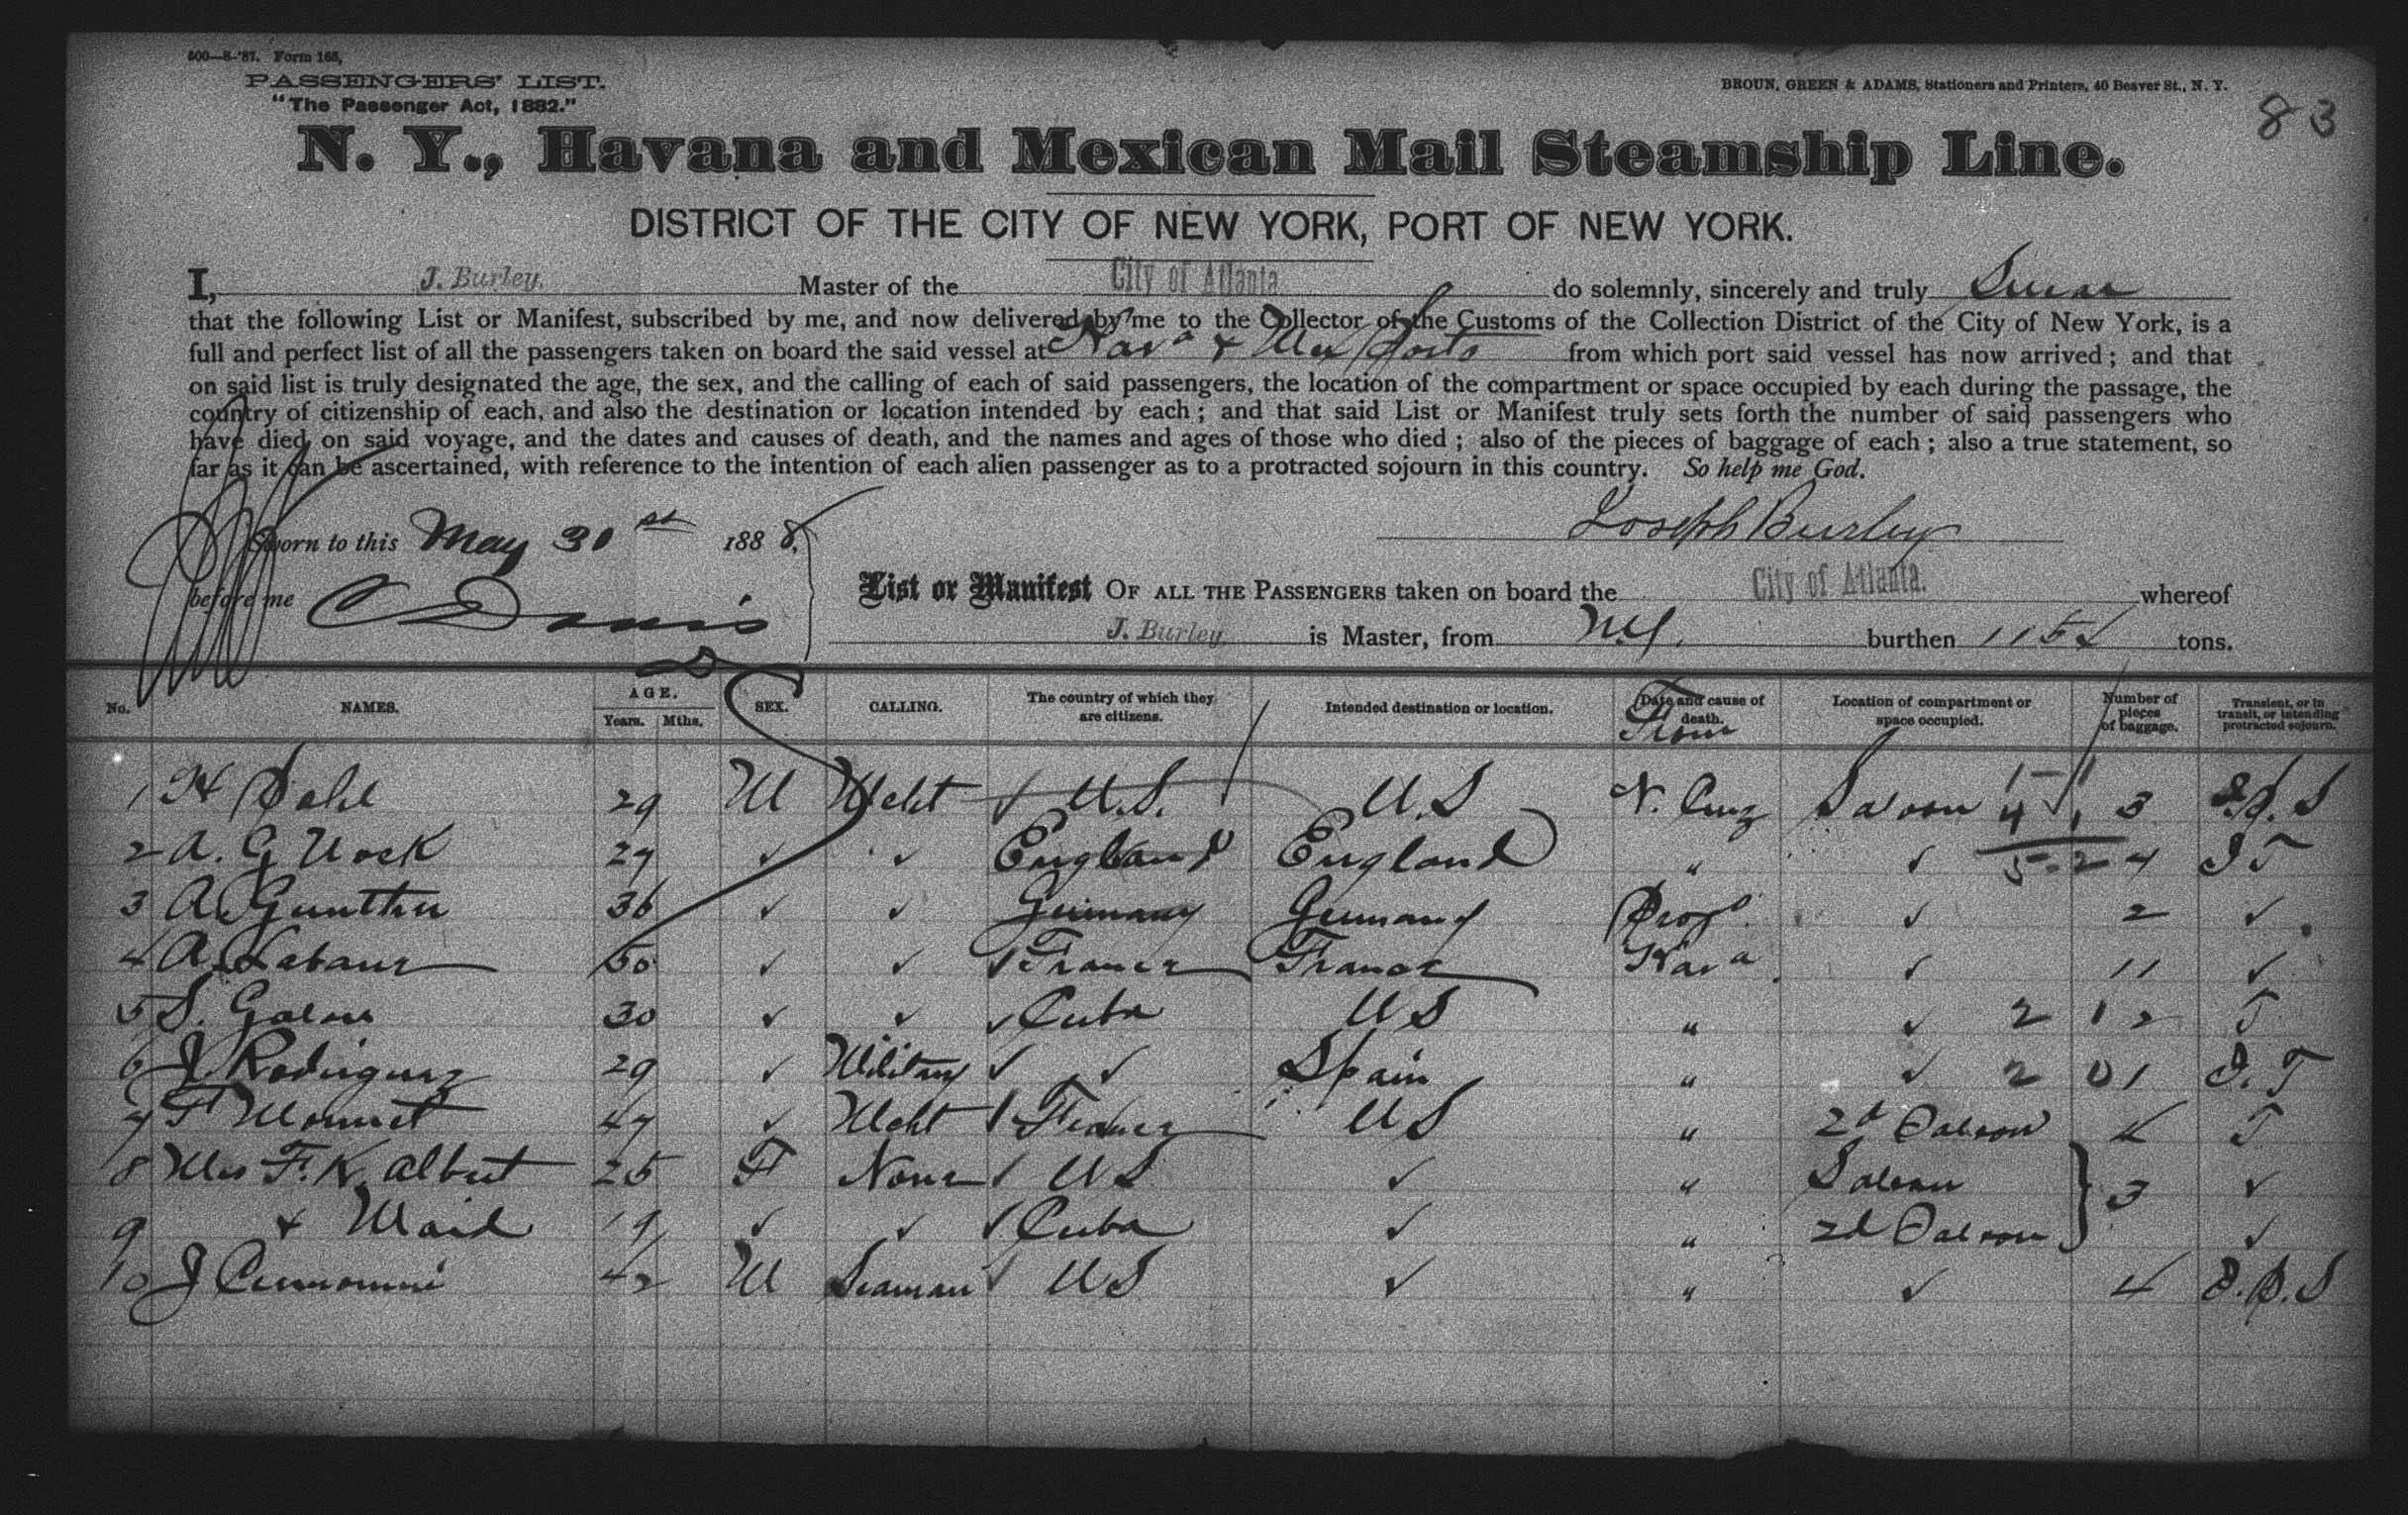 500—8-'87. Form 165,
PASSENGERS' LIST.
"The Passenger Act, 1882."
BROUN, GREEN & ADAMS, Stationers and Printers, 40 Beaver St., N. Y.
83
N. Y., Havana and Mexican Mail Steamship Line.
DISTRICT OF THE CITY OF NEW YORK, PORT OF NEW YORK.
I, J. Burley, Master of the City of Atlanta do solemnly, sincerely and truly Swear
that the following List or Manifest, subscribed by me, and now delivered by me to the Collector of the Customs of the Collection District of the City of New York, is a
full and perfect list of all the passengers taken on board the said vessel at Hava & Mex Ports from which port said vessel has now arrived; and that
on said list is truly designated the age, the sex, and the calling of each of said passengers, the location of the compartment or space occupied by each during the passage, the
country of citizenship of each, and also the destination or location intended by each; and that said List or Manifest truly sets forth the number of said passengers who
have died on said voyage, and the dates and causes of death, and the names and ages of those who died; also of the pieces of baggage of each; also a true statement, so
far as it can be ascertained, with reference to the intention of each alien passenger as to a protracted sojourn in this country. So help me God.
Sworn to this May 30 st 1888,
Joseph Burley
before me C Davis
List or Manifest OF ALL THE PASSENGERS taken on board the City of Atlanta. whereof
J. Burley is Master, from NY. burthen 115 tons.
No. NAMES. AGE. Years. Mths. SEX. CALLING. The country of which they are citizens. Intended destination or location. Date and cause of death. From Location of compartment or space occupied. Number of pieces of baggage. Transient, or in transit, or intending protracted sojourn.
1 H 29 M Mcht ✓ U.S. U.S V. Cruz Saloon 4 1 3 P. S
2 A. G 27 ✓ ✓ England England " ✓ 5-2 4 I T
3 A Gunther 36 ✓ ✓ Germany Germany Progo. ✓ 2 ✓
4 A. 50 ✓ ✓ ✓ France France Hava. ✓ 11 ✓
5 S. 30 ✓ ✓ ✓ Cuba U S " ✓ 2 1 2 T
6 J Rodriguez 29 ✓ Military ✓ ✓ Spain " ✓ 2 0 1 I. T
7 F Monnet 47 ✓ Mcht ✓ France U S " 2d Saloon 4 T
8 Mrs F. K. Albert 25 F None ✓ U S ✓ " Saloon 3 ✓
9 & Maid 19 ✓ ✓ ✓ Cuba ✓ " 2d Saloon ✓
10 J 42 M Seaman ✓ U S ✓ " ✓ 4 P. S